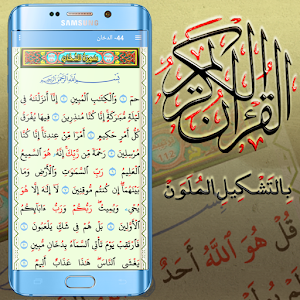 44- الدخان
سُورَةُ الدُّخَانِ
بِسْمِ اللَّهِ الرَّحْمَٰنِ الرَّحِيمِ
حمٓ وَالْكِتَٰبِ الْمُبِينِ إِنَّا أَنزَلْنَٰهُ فِي
لَيْلَةٍ مُّبَٰرَكَةٍ إِنَّا كُنَّا مُنذِرِينَ فِيهَا يُفْرَقُ
كُلُّ أَمْرٍ حَكِيمٍ أَمْرًا مِّنْ عِندِنَا إِنَّا كُنَّا
مُرْسِلِينَ رَحْمَةً مِّن رَّبِّكَ إِنَّهُ هُوَ السَّمِيعُ
الْعَلِيمُ رَبِّ السَّمَٰوَٰتِ وَالْأَرْضِ وَمَا
بَيْنَهُمَا إِن كُنتُم مُّوقِنِينَ لَا إِلَٰهَ إِلَّا هُوَ
يُحْيِي وَيُمِيتُ رَبُّكُمْ وَرَبُّ ءَابَآئِكُمُ
الْأَوَّلِينَ بَلْ هُمْ فِي شَكٍّ يَلْعَبُونَ
فَارْتَقِبْ يَوْمَ تَأْتِي السَّمَآءُ بِدُخَانٍ مُّبِينٍ
يَغْشَى النَّاسَ هَٰذَا عَذَابٌ أَلِيمٌ
القرآن الكريم
بِالتَّشْكِيلِ المُلَوَّنْ
قُلْ هُوَ اللَّهُ أَحَدٌ